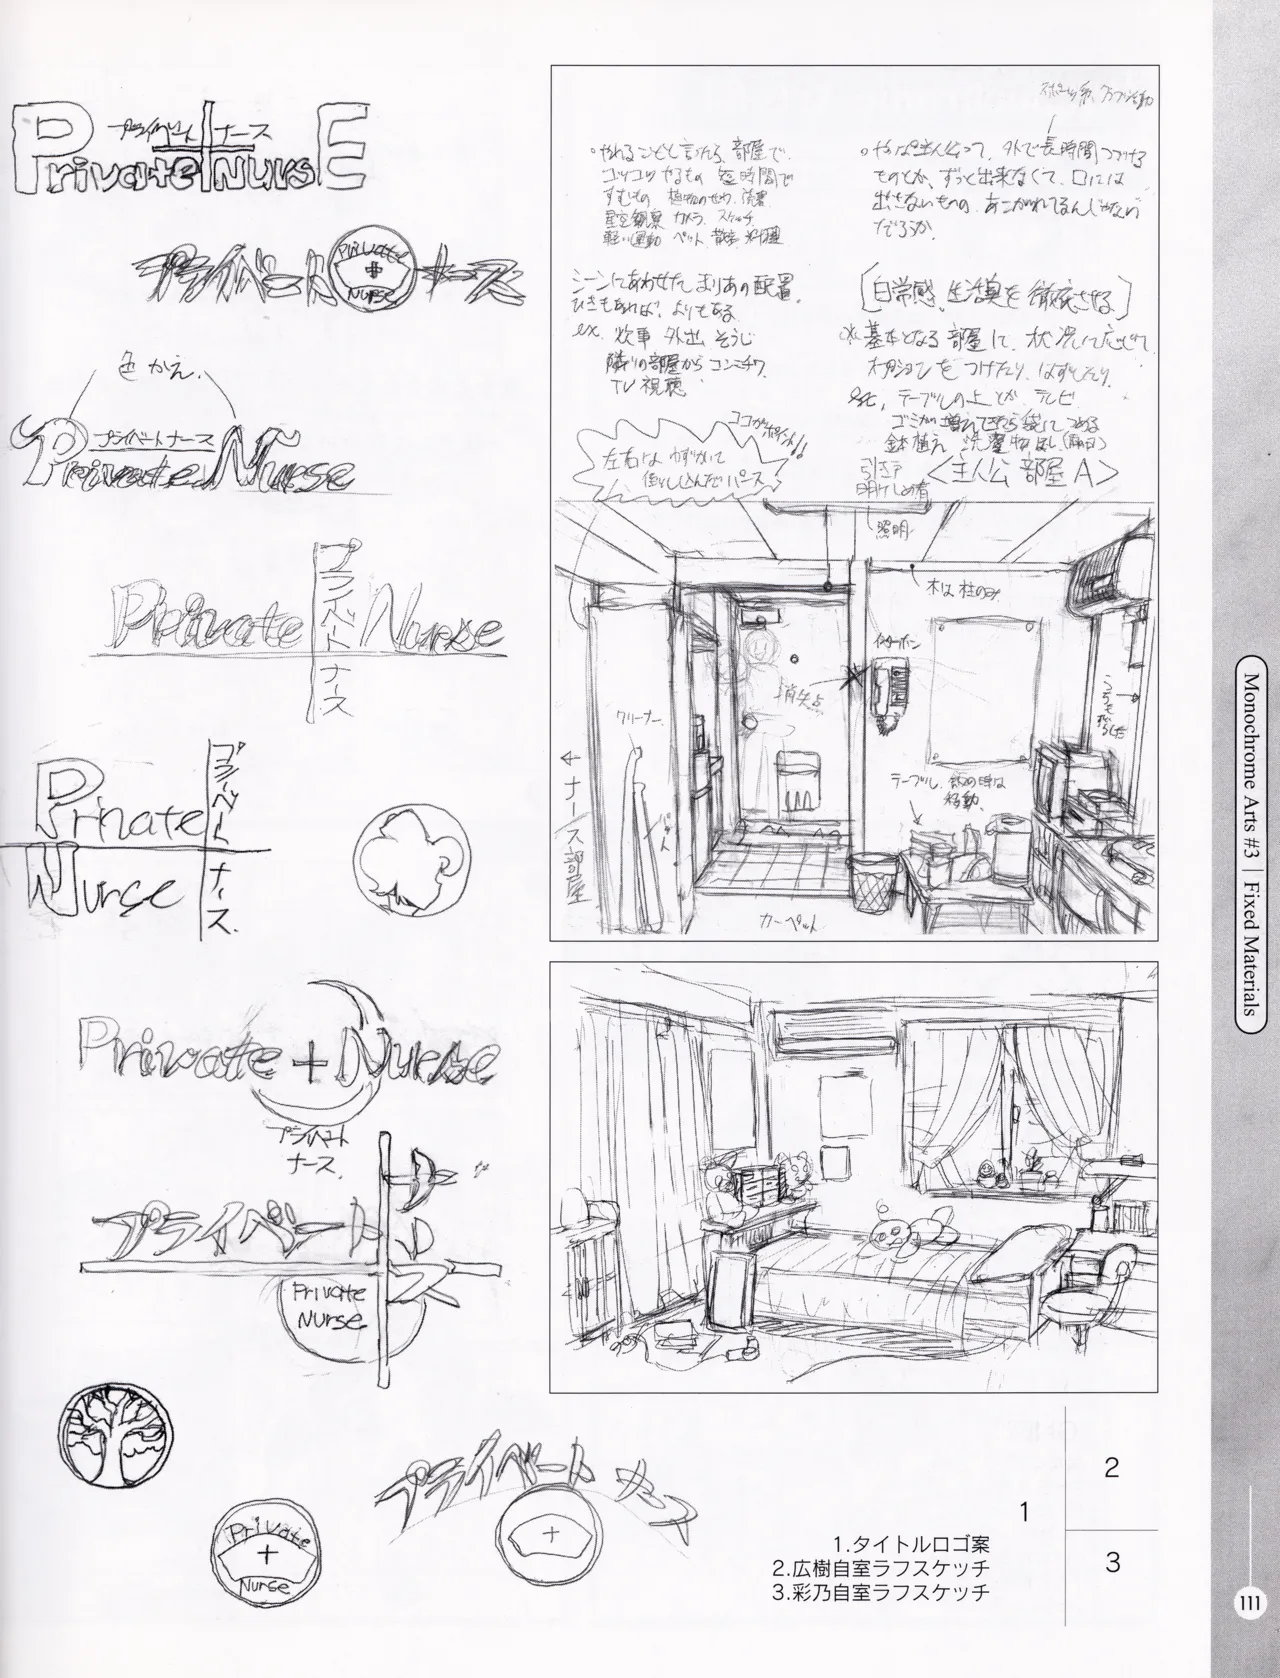 Private NursE
プライベート ナース
プライベート ナース
Private
Nurse
色かえ.
プライベートナース
Private Nurse
Private Nurse
プライベート ナース
Private
Nurse
プライベート ナース
Private + Nurse
プライベート
ナース.
プライベート ナース
Private
Nurse
Private
Nurse
プライベート ナース
スポーツ系、クラブ活動
部屋で.
短時間で
カメラ. スケッチ.
軽い運動 ペット 散歩 料理
シーンにあわせた まりあの配置.
ひきもあれば、よりもある
ex. 炊事 外出 そうじ
隣りの部屋から コンニチワ.
TV 視聴
ココがポイント!!
左右は わずかに
倒しこんだパース
外で長時間つづける
ものとか、ずっと出来なくて、口には
出さないものの、あこがれてるんじゃない
だろうか.
[日常感、生活臭を徹底させる]
※基本となる部屋に、状況に応じて
オプションをつけたり、はずしたり.
etc, テーブルの上とか テレビ
ゴミが増えてきたら袋につめる
鉢植え 洗濯物ほし(雨の日)
引き戸
明けしめ有
<主人公 部屋 A>
照明
木は 柱のみ
インターホン
消失点
クリーナー
←ナース部屋
テーブル.
移動.
カーペット
1
2
3
1.タイトルロゴ案
2.広樹自室ラフスケッチ
3.彩乃自室ラフスケッチ
Monochrome Arts #3 | Fixed Materials
111